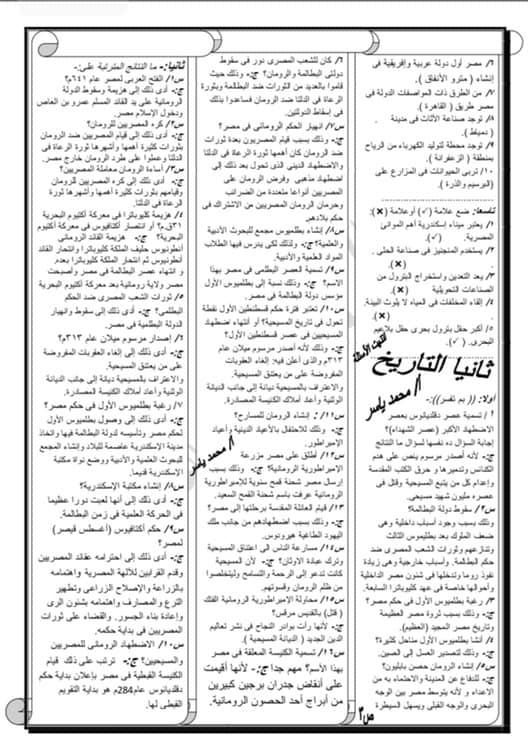 ٦/ مصر أول دولة عربية وإفريقية فى
إنشاء ( مترو الأنفاق ).
٧/ من الطرق ذات المواصفات الدولة فى
مصر طريق ( القاهرة ).
٨/ توجد صناعة الأثاث فى مدينة .
( دمياط ).
٩/ توجد محطة لتوليد الكهرباء من الرياح
بمنطقة ( الزعفرانة ).
١٠/ تربى الحيوانات فى المزارع على
(البرسيم والذرة ).
تاسعا: ضع علامة (✓) أوعلامة (×):
١/ يعتبر ميناء إسكندرية أهم الموانئ
المصرية. (✓).
٢/ يستخدم المنجنيز فى صناعة الحلى .
(×).
٣/ يعد التعدين واستخراج البترول من
الصناعات التحويلية (×)
٤/ إلقاء المخلفات في المياه لا يلوث البيئة.
(×).
٥/ أكبر حقل بترول بحرى حقل بلاعيم
البحرى. (✓).
انتهت الأسئلة
ثانيا التاريخ
أ/ محمد ياسر
أولا: (( بم تفسر)):-
١/ تسمية عصر دقلديانوس بعصر
الاضطهاد الأكبر (عصر الشهداء)؟
إجابة السؤال ده نفسها لسؤال ما النتائج
ج:- لأنه أصدر مرسوم ينص على هدم
الكنائس وتدميرها و حرق الكتب المقدسة
وإعدام كل من يتبع المسيحية وقتل فى
عصره مليون شهيد مسيحى.
س٢/ سقوط دولة البطالمة؟
وذلك بسبب وجود أسباب داخلية وهى
ضعف الملوك بعد بطليموس الثالث
وتنازعهم وثورات الشعب المصرى ضد
حكم البطالمة. وأسباب خارجية وهى زيادة
نفوذ روما وتدخلها فى شئون مصر الداخلية
وأحوالها خاصة فى عهد كليوباترا السابعة.
٣/ رغبة بطليموس الأول فى حكم مصر؟
ج:- وذلك بسبب ثروة مصر العظيمة
وتاريخ مصر المجيد (العظيم).
٤/ أنشأ بطليموس الأول مناحل كثيرة؟
ج:- وذلك لتصدير العسل إلى الصين.
س٥/ إنشاء الرومان حصن بابليون؟
ج:- للدفاع عن المدينة والاحتماء به من
الاعداء و لأنه يتوسط مصر بين الوجه
البحرى والوجه القبلى ويسهل السيطرة
ص٣
٦/ كان للشعب المصرى دور فى سقوط
دولتى البطالمة والرومان؟ ج:- وذلك حيث
قاموا بالعديد من الثورات ضد البطالمة وبثورة
الرعاة فى الدلتا ضد الرومان فساعدوا بذلك
فى إسقاط الدولتين.
س٧/ انهيار الحكم الرومانى فى مصر؟
ج:- وذلك بسبب قيام المصريون بعدة ثورات
ضد الرومان كان أهمها ثورة الرعاة فى الدلتا
والاضطهاد الدينى الذى تحول بعد ذلك إلى
اضطهاد مذهبى. وفرض الرومان على
المصريين أنواعا متعددة من الضرائب
وحرمان الرومان المصريين من الاشتراك فى
حكم بلادهم
س٨/ إنشاء بطليموس مجمع للبحوث الأدبية
والعلمية؟ج:- وذلك لكى يدرس فيها الطلاب
المواد العلمية والأدبية.
س٩/ تسمية العصر البطلمى فى مصر بهذا
الاسم؟ ج:- وذلك نسبة إلى بطليموس الأول
مؤسس دولة البطالمة فى مصر.
س١٠/ تعتبر فترة حكم قسطنطين الأول نقطة
تحول فى تاريخ المسيحية؟ أو أنتهاء اضطهاد
المسيحيين فى عصر قسطنطين الأول؟
ج:- وذلك لأنه أصدر مرسوم ميلان عام
٣١٣م والذى أعلن فيه: إلغاء العقوبات
المفروضة على من يعتنق المسيحية.
والاعتراف بالمسيحية ديانة إلى جانب الديانة
الوثنية وأعاد أملاك الكنيسة المصادرة.
س١١/ : إنشاء الرومان للمسارح؟
ج:- وذلك للاحتفال بالأعياد الدينية وأعياد
الإمبراطور.
س١٢/ أطلق على مصر مزرعة
الإمبراطورية الرومانية؟ ج:- وذلك بسبب
إرسال مصر شحنة قمح سنوية للإمبراطورية
الرومانية عرفت باسم شحنة القمح السعيد.
١٣/ قيام العائلة المقدسة برحلتها إلى مصر؟
ج:- وذلك بسبب اضطهادهم من جانب ملك
اليهود الطاغية هيرودوس.
س١٤/ مسارعة الناس الى اعتناق المسيحية
وترك عبادة الاوثان؟ ج:- لأن المسيحية
كانت تدعو إلى الرحمة والتسامح وليتخلصوا
من ظلم الرومان وقسوتهم.
س١٥/ محاولة الإمبراطورية الرومانية الفتك
( قتل) بالقديس مرقس؟
ج:- لأنها رأت بوادر النجاح فى نشر تعاليم
الدين الجديد ( الديانة المسيحية ).
س١٦/ تسمية الكنيسة المعلقة فى مصر
بهذا الأسم؟ مهم جدا ج:- لأنها أقيمت
على أنقاض جدران برجين كبيرين
من أبراج أحد الحصون الرومانية.
أ/ محمد ياسر
ثانيا:- ما النتائج المترتبة على:-
س١/ الفتح العربى لمصر عام ٦٤١م؟
ج:- أدى ذلك إلى هزيمة وسقوط الدولة
الرومانية على يد القائد المسلم عمرو بن العاص
ودخول الإسلام مصر.
س٢/ كره المصريين للرومان؟
ج:- أدى ذلك إلى قيام المصريين ضد الرومان
بثورات كثيرة أهمها وأشهرها ثورة الرعاة فى
الدلتا وعملوا على طرد الرومان خارج مصر.
س٣/ أساءة الرومان معاملة المصريين؟
ج:- أدى ذلك إلى كره المصريين للرومان
وقيامهم بثورات كثيرة أهمها وأشهرها ثورة
الرعاة فى الدلتا.
٤/ هزيمة كليوباترا فى معركة أكتيوم البحرية
٣١ق.م؟ أو أنتصار أكتافيوس فى معركة أكتيوم
البحرية؟ ج:- هزيمة القائد الرومانى
أنطونيوس حليف الملكة كليوباترا وانتحار القائد
أنطونيوس ثم انتحار الملكة كليوباترا بعده.
و انتهاء عصر البطالمة فى مصر وأصبحت
مصر ولاية رومانية بعد معركة أكتيوم البحرية
٥/ ثورات الشعب المصرى ضد الحكم
البطلمى؟ ج:- أدى ذلك إلى سقوط وانهيار
الدولة البطلمية فى مصر.
٦/ إصدار مرسوم ميلان عام ٣١٣م؟
ج:- أدى ذلك إلى إلغاء العقوبات المفروضة
على من يعتنق المسيحية.
والاعتراف بالمسيحية ديانة إلى جانب الديانة
الوثنية وأعاد أملاك الكنيسة المصادرة.
٧/ رغبة بطليموس الأول فى حكم مصر؟
ج:- أدى ذلك إلى وصول بطليموس الأول
لحكم مصر وتأسيسه لدولة البطالمة فيها واتخاذ
مدينة الإسكندرية عاصمة للبلاد وإنشاء المجمع
للبحوث العلمية والأدبية ووضع نواة مكتبة
الإسكندرية قديما.
س٨/ إنشاء مكتبة الإسكندرية؟
ج:- أدى ذلك إلى أنها لعبت دورا عظيما
فى الحركة العلمية فى زمن البطالمة.
س٩/ حكم أكتافيوس (أغسطس قيصر)
لمصر؟
ج:- أدى ذلك إلى احترامه عقائد المصريين
وقدم القرابين للآلهة المصرية واهتمامه
بالزراعة والإصلاح الزراعى وتطهير
الترع و المصارف واهتمامه بشئون الرى
وإعادة بناء الجسور. والقضاء على ثورات
المصريين فى بداية حكمه.
س١٠/ الاضطهاد الرومانى للمصريين
والمسيحيين؟ ج:- ترتب على ذلك قيام
الكنيسة القبطية فى مصر بإعلان بداية حكم
دقلديانوس عام284م هو بداية التقويم
القبطى لها.